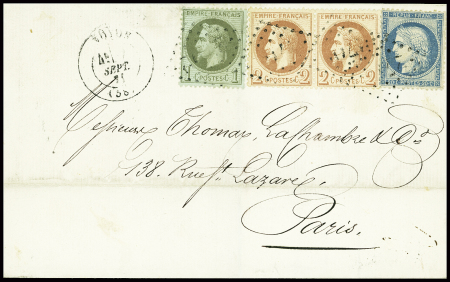 EMPIRE FRANÇAIS EMPIRE FRANÇAIS EMPIRE FRANÇAIS REPUB. FRANC.
SEPT.
(38)
1 POSTES C 1 2 POSTES C 2 2 POSTES C 2
Messieurs Thomas, Lachambre & Cie
138. Rue St Lazare
Paris.